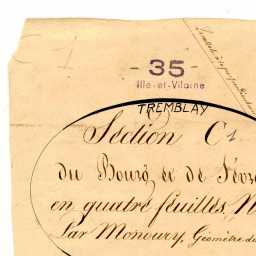 - 35 -
Ille-et-Vilaine
TREMBLAY
Section C1
du Bourg et de
en quatre feuilles, N
Par Monoury, Géomètre du